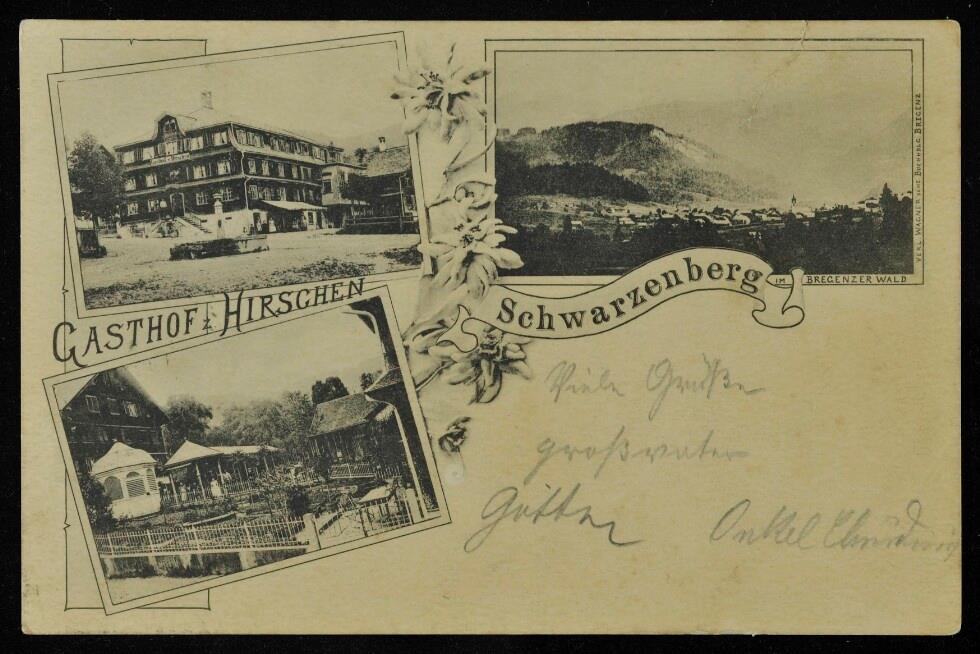 GASTHOF Z. HIRSCHEN
Schwarzenberg
IM BREGENZER WALD
VERL. WAGNER'SCHE BUCHHDLG. BREGENZ
Viele Grüße
großvater
Onkel